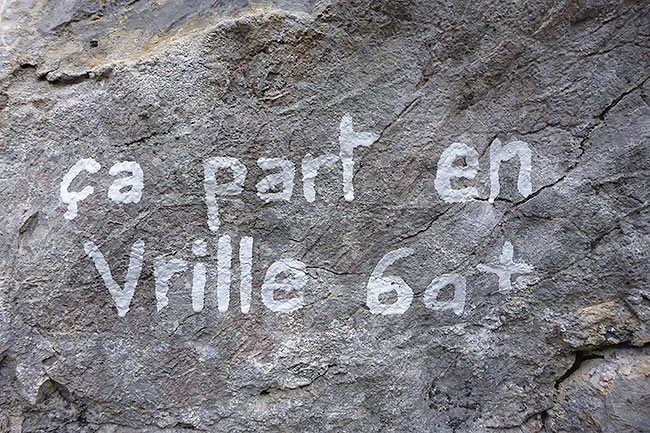 ça part en
Vrille 6a+